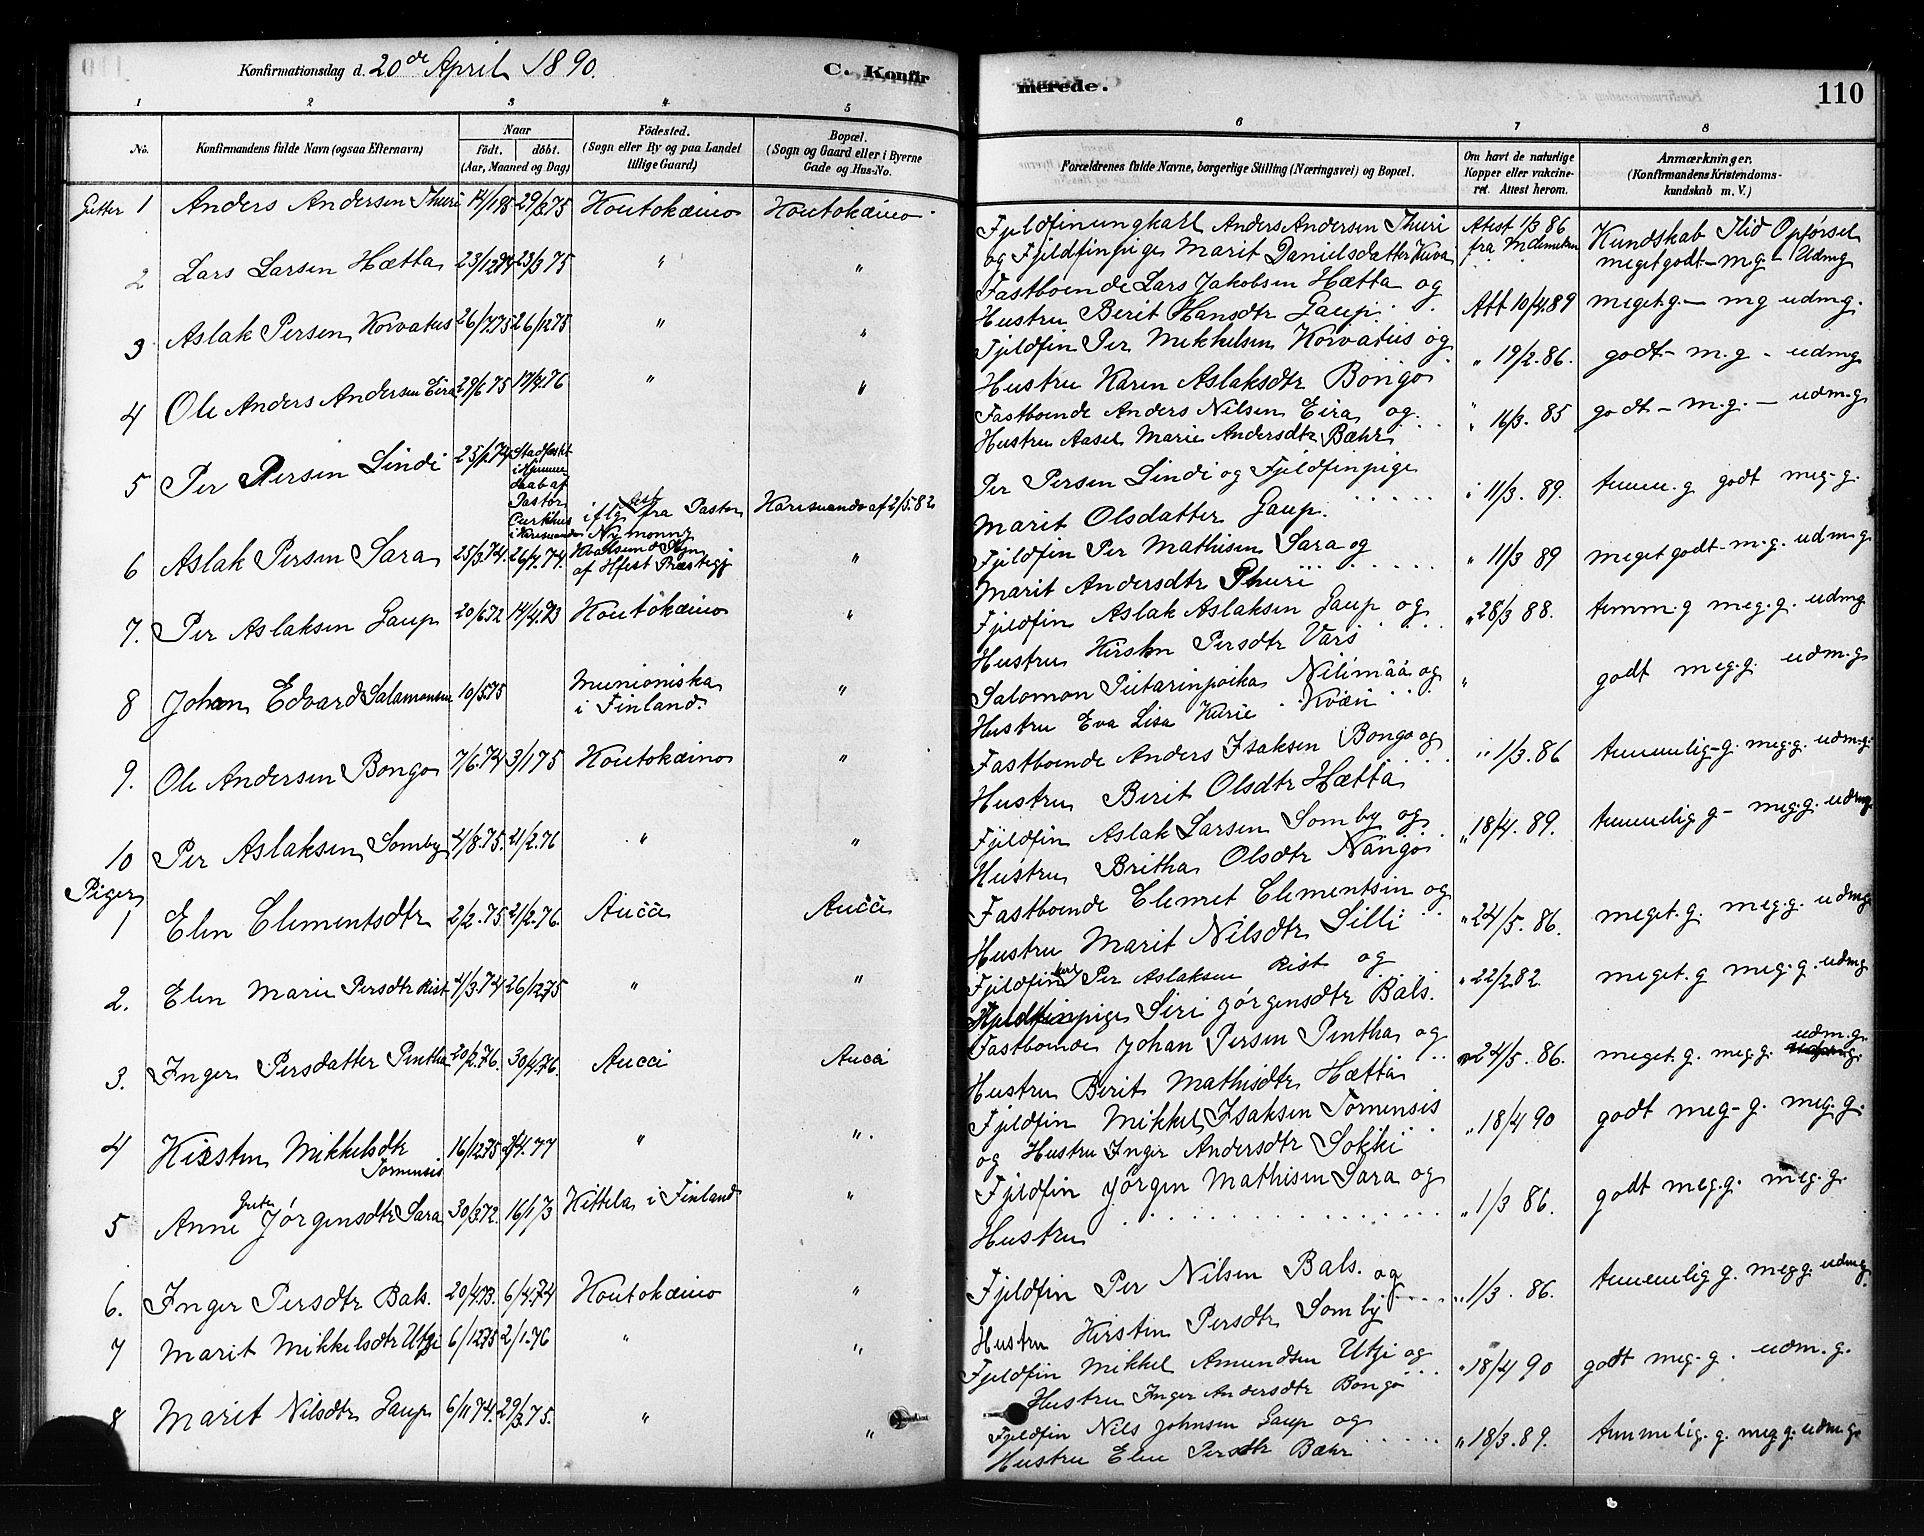 Konfirmationsdag d. 20de April 1890.
C. Konfirmerede.
110
1 2 3 4 5 6 7 8
No.
Konfirmandens fulde Navn (ogsaa Efternavn)
Naar
født. døbt.
(Aar, Maaned og Dag)
Födested.
(Sogn eller By og paa Landet
tillige Gaard)
Bopæl.
(Sogn og Gaard eller i Byerne
Gade og Hus-No.
Forældrenes fulde Navne, borgerlige Stilling (Næringsvei) og Bopæl.
Om havt de naturlige
Kopper eller vakcine-
ret. Attest herom.
Anmærkninger.
(Konfirmandens Kristendoms-
kundskab m. V.)
Gutter 1 Anders Andersen Thuri 29/3 75 Koutokæino Koutokæino
Fjeldfinungkarl Anders Andersen Thuri Atest 1/3 86 Kundskab Flid Opførsel
og Fjeldfinpige Marit Danielsdatter Kuva meget godt - mg - Udmg
2 Lars Larsen Hætta 23/12 74 23/3 75 " "
Fastboende Lars Jakobsen Hætta og
Hustru Berit Hansdtr Gaup. Att 10/4.89 meget g - mg udm.g.
3 Aslak Persen Korvatus 26/7.75 26/12 75 " "
Fjeldfin Per Mikkelsen Korvatus og " 19/2.86. godt - m.g - udmg
Hustru Karen Aslaksdtr Bongo
4 Ole Anders Andersen Eira 29/6 75 17/4.76 " "
Fastboende Anders Nilsen Eira og " 16/3. 85 godt - m.g. - udm.g
Hustru Aasel Marie Andersdtr Bæhr
5 Per Persen Lindi 25/1.74 Stadfæstet
i Hjemme-
daab af
Pastor
i Karesuando
iflg. Att fra Pastor Karesuando af 2/5.82
Per Persen Lindi og Fjeldfinpige " 11/3. 89. temm.g godt meg-g.
Marit Olsdatter Gaup.
6 Aslak Persen Sara 25/3.74. 26/4.74. Kvalsund Sogn
af Hfest Præstegj "
Fjeldfin Per Mathisen Sara og " 11/3 89 meget godt - m.g. udm.g
Marit Andersdtr Thuri
7. Per Aslaksen Gaup 20/6 72 14/4.73 Koutokæino "
Fjeldfin Aslak Aslaksen Gaup og " 28/3 88. temm.g meg.g. udmg
Hustru Kirsten Persdtr Vars
8 Johan Edvard Salamonsen 10/5 75 Munioniska
i Finland. "
Salomon Pietarinpoika Nilimää og " godt meg.g. udm.g
Hustru Eva Lisa Kurie. Kvæn
9. Ole Andersen Bongo 7/6.74 3/1 75 Koutokæino "
Fastboende Anders Isaksen Bongo og " 1/3.86 temmelig-g. meg.g. udm.g.
Hustru Berit Olsdtr Hætta
10 Per Aslaksen Somby 4/8.75. 21/2.76 " "
Fjeldfin Aslak Larsen Somby og " 18/4. 89. temmelig g - meg.g. udmg.
Hustru Britha Olsdtr Nango
Piger
1 Elen Clementsdtr 2/2.75 21/2.76. Aucci Aucci
Fastboende Clemet Clementsen og " 24/5. 86. meget. g. meg.g. udmg.
Hustru Marit Nilsdtr Silli
2. Elen Marie Persdtr Rist 4/3.74 26/12 75 " "
Fjeldfin karl Per Aslaksen Rist og " 22/2 82. meget. g meg.g. udmg
Fjeldfinpige Siri Jørgensdtr Bals.
3. Inger Persdatter Pentha 20/2.76. 30/4.76. Aucci Aucci
Fastboende Johan Persen Pentha og " 24/5. 86. meget. g. meg.g. udm.g.
Hustru Berit Mathisdtr Hætta
4 Kirsten Mikkelsdtr
Tornensis 16/12 75 "
Fjeldfin Mikkel Isaksen Tornensis " 18/4 90 godt meg-g. meg.g.
og Hustru Inger Andersdtr Sokki
5 Anne Jørgensdtr Sara 30/3 72. 16/1 73 Kittila i Finland "
Fjeldfin Jørgen Mathisen Sara og " 1/3 86. godt meg.g. meg.g.
Hustru
6. Inger Persdtr Bals. 20/4.73. 6/4.74 Koutokæino "
Fjeldfin Per Nilsen Bals. og " 1/3. 86. temmelig g. meg g. udm.g.
Hustru Kirsten Persdtr Somby
7 Marit Mikkelsdtr Utzi 6/12 75 2/1.76 " "
Fjeldfin Mikkel Amundsen Utzi og " 18/4 90 godt meg. g. udm. g.
Hustru Inger Andersdtr Bongo
8 Marit Nilsdtr Gaup 6/11 74. 29/3.75. " "
Fjeldfin Nils Johnsen Gaup og " 18/3.89. temmelig. g. meg g. udm.g
Hustru Elen Persdtr Bæhr